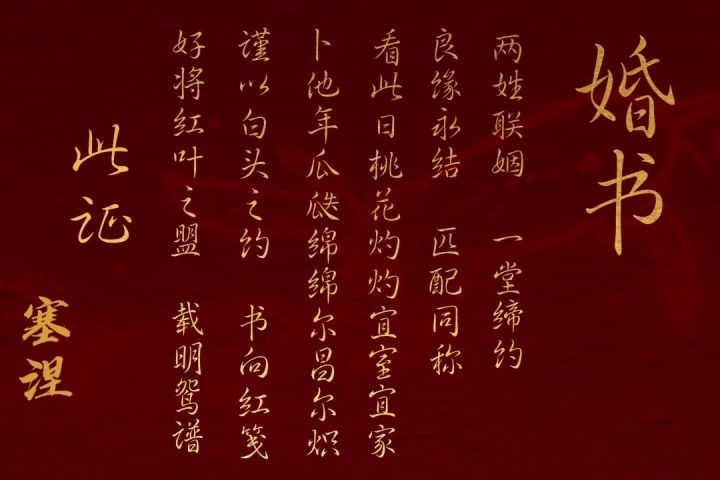 婚书
两姓联姻 一堂缔约
良缘永结 匹配同称
看此日桃花灼灼宜室宜家
卜他年瓜瓞绵绵尔昌尔炽
谨以白头之约 书向红笺
好将红叶之盟 载明鸳谱
此证
塞涅